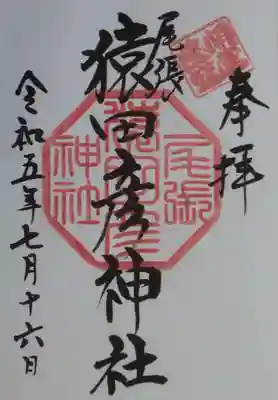 奉拝
尾張
猿田彦神社
令和五年七月十六日
尾張
猿田彦
神社